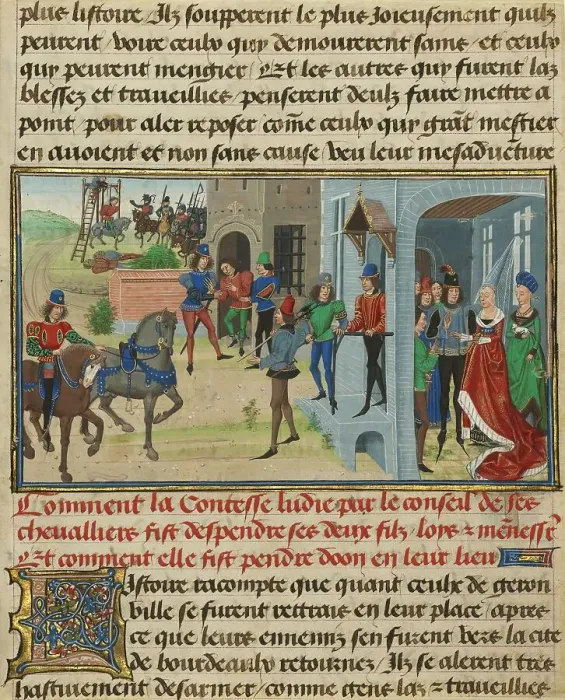 plus listoire Ilz soupperent le plus Joieusement quilz
peurent / voire ceulx quy demourerent sains et ceulx
quy peurent mengier / Et les autres quy furent las
blessez et traueilliez penserent deulz faire mettre a
point pour aler reposer com̄e ceulx quy grāt mestier
en auoient et non sans cause Veu leur mesaduēture
Comment la Contesse ludie par le conseil de ses
cheualliers fist despendre ses deux filz / loys
Et comment elle fist pendre doon en leur lieu
Listoire racompte que quant ceulx de geron
ville se furent rettrais en leur place / apres
ce que leurs ennemis sen furent Vers la cite
de bourdeaulx retournez / Ilz se alerent tres
hastiuement desarmer / comme gens las z traueilliez